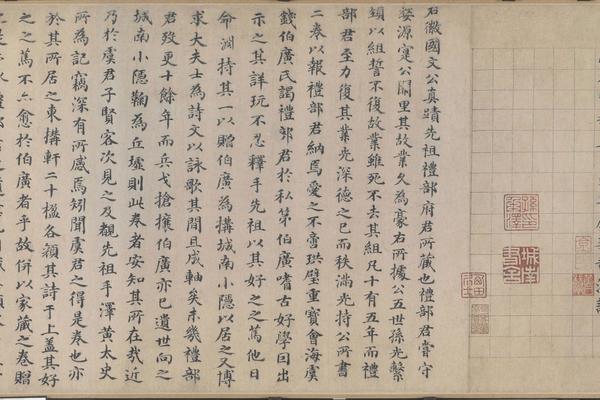 右徽國文公真蹟先祖禮部府君所藏也禮部君嘗守
婺源寔公闕里其故業久為豪右所據公五世孫光繫
頸以組誓不復故業雖死不去其組凡十有五年而禮
部君至力復其業光深德之已而秩滿光持公所書
二卷以報禮部君納焉愛之不啻珙璧重寶會海虞
錢伯廣氏謁禮部君於私第伯廣嗜古好學因出
示之其詳玩不忍釋手先祖以其好之之篤他日
命淵持其一以贈伯廣為搆城南小隱以居之又博
求大夫士為詩文以詠歌其間且成軸矣未幾禮部
君歿更十餘年而兵戈搶攘伯廣亦已遺世向之
城南小隱鞠為丘墟則此卷者安知其所在哉近
乃於虞君子賢客次見之及觀先祖手澤黃太史
所為記竊深有所感焉矧聞虞君之得是卷也亦
於其所居之東搆軒二十楹各顏其詩于上盖其好
之之篤不亦愈於伯廣者乎故併以家藏之卷贈